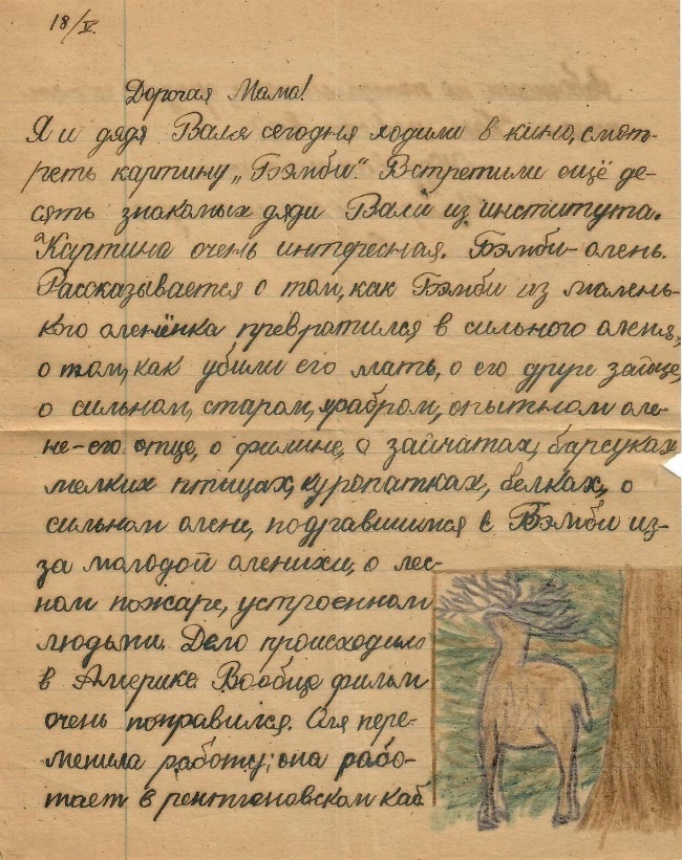 18/V.
Дорогая Мама!
Я и дядя Валя сегодня ходили в кино, смот-
реть картину „Бэмби". Встретили ещё де-
сять знакомых дяди Вали из института.
Картина очень интересная. Бэмби-олень.
Рассказывается о том, как Бэмби из малень-
кого оленёнка превратился в сильного оленя,
о том, как убили его мать, о его друге зайце,
о сильном, старом, храбром, опытном оле-
не-его отце, о филине, о зайчатах, барсуках,
мелких птицах, куропатках, белках, о
сильном олене, подравшимся с Бэмби из-
за молодой оленихи, о лес-
ном пожаре, устроенном
людьми. Дело происходило
в Америке. Вообще фильм
очень понравился. Оля пере-
менила работу; она рабо-
тает в рентгеновском каб